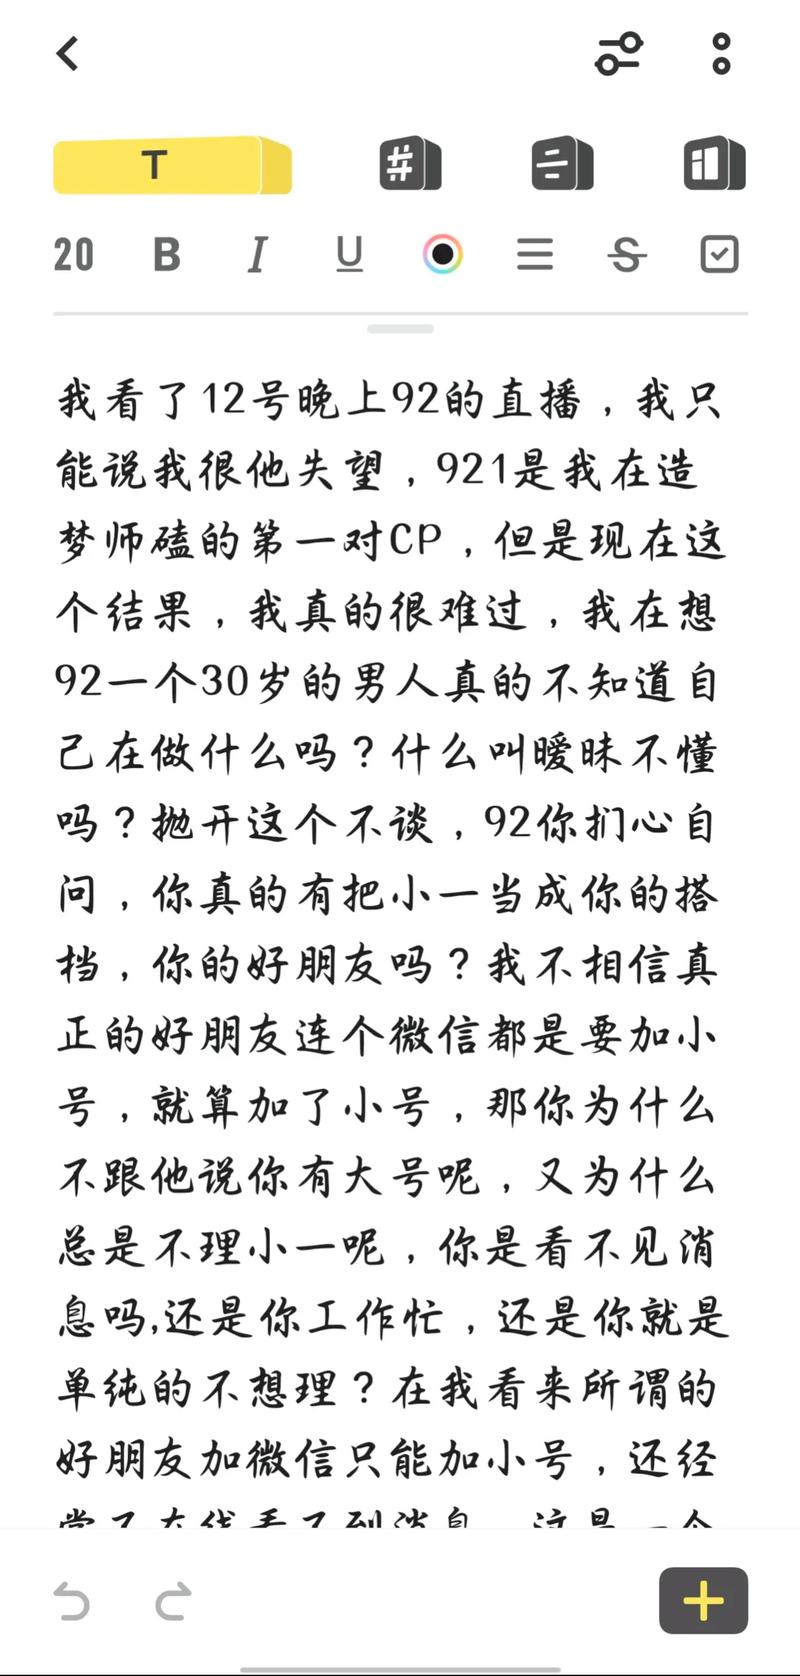 T
20 B I U S
我看了12号晚上92的直播，我只
能说我很他失望，921是我在造
梦师磕的第一对CP，但是现在这
个结果，我真的很难过，我在想
92一个30岁的男人真的不知道自
己在做什么吗？什么叫暧昧不懂
吗？抛开这个不谈，92你扪心自
问，你真的有把小一当成你的搭
档，你的好朋友吗？我不相信真
正的好朋友连个微信都是要加小
号，就算加了小号，那你为什么
不跟他说你有大号呢，又为什么
总是不理小一呢，你是看不见消
息吗,还是你工作忙，还是你就是
单纯的不想理？在我看来所谓的
好朋友加微信只能加小号，还经